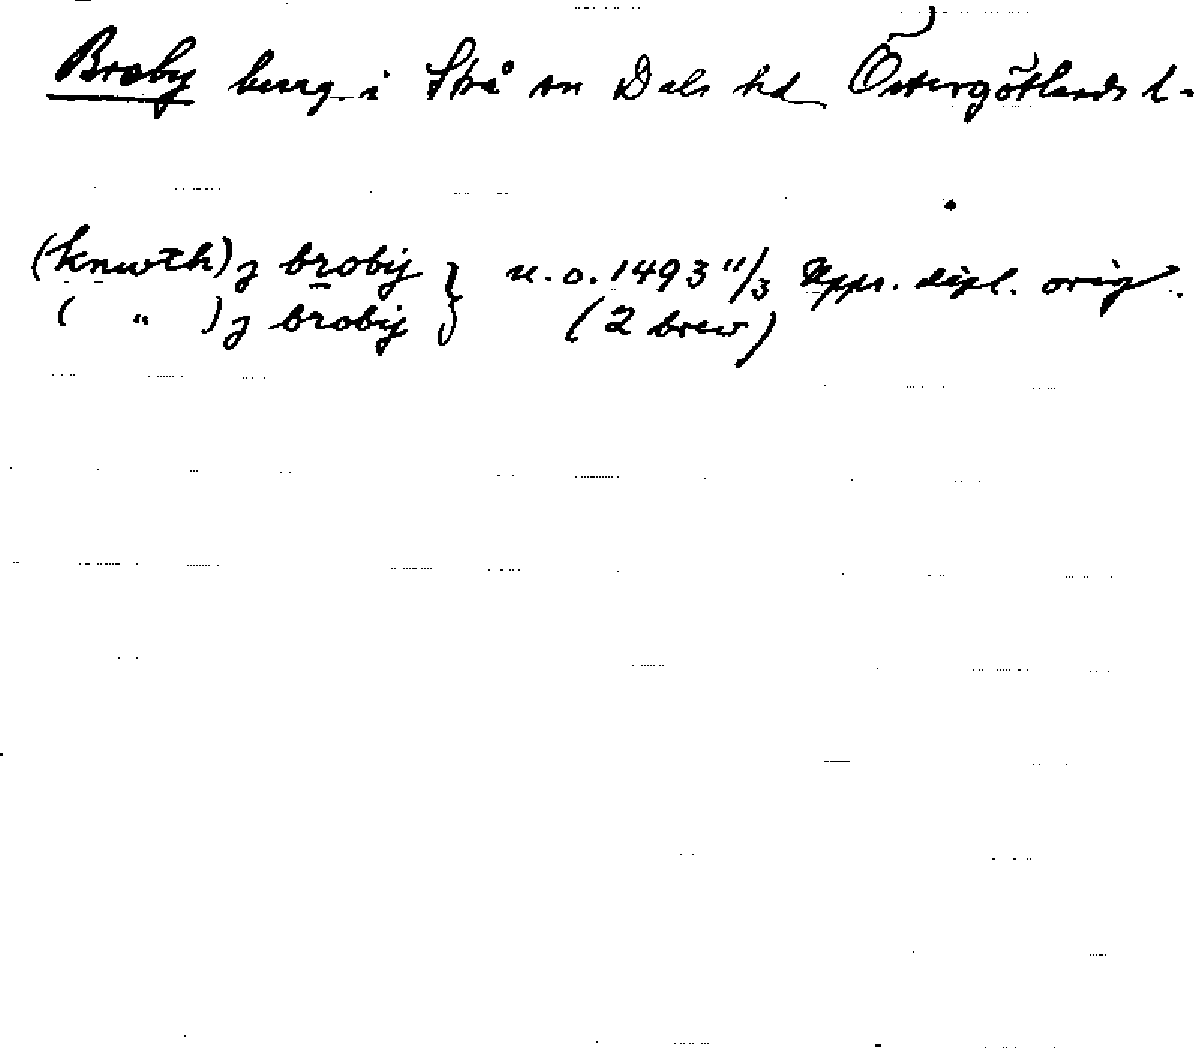 Broby by i Strå sn Dals hd Östergötlands l.
(knwth) j broby } u. o. 1493 11/3 Upps. dipl. orig.
( " ) j broby } (2 brev)